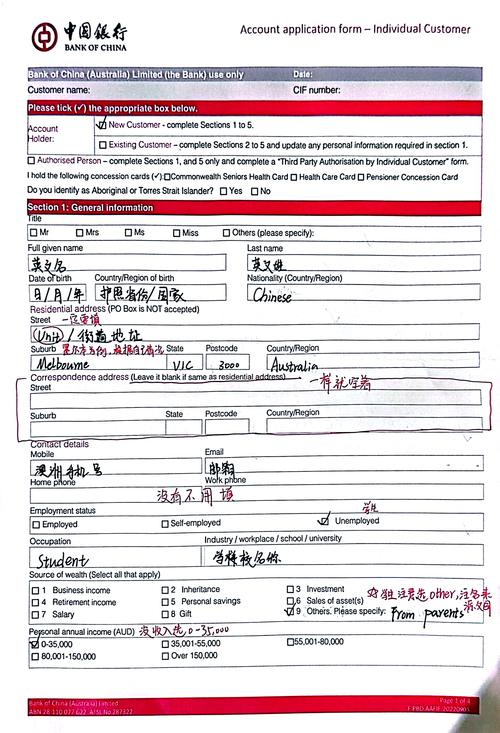 中国银行
BANK OF CHINA
Account application form – Individual Customer
Bank of China (Australia) Limited (the Bank) use only Date:
Customer name: CIF number:
Please tick (✓) the appropriate box below.
Account Holder:
New Customer - complete Sections 1 to 5.
Existing Customer – complete Sections 2 to 5 and update any personal information required in section 1.
Authorised Person – complete Sections 1, and 5 only and complete a "Third Party Authorisation by Individual Customer" form.
I hold the following concession cards (✓) Commonwealth Seniors Health Card Health Care Card Pensioner Concession Card
Do you identify as Aboriginal or Torres Strait Islander? Yes No
Section 1: General information
Title
Mr Mrs Ms Miss Others (please specify):
Full given name Last name
英文名 英文姓
Date of birth Country/Region of birth Nationality (Country/Region)
日/月/年 护照省份/国家 Chinese
Residential address (PO Box is NOT accepted)
Street 一定要填
Unit / 街道地址
Suburb State Postcode Country/Region
Melbourne VIC 3000 Australia
Correspondence address (Leave it blank if same as residential address) 一样就空着
Street
Suburb State Postcode Country/Region
Contact details
Mobile Email
澳洲手机号 邮箱
Home phone Work phone
没有不用填
Employment status 学生
Employed Self-employed Unemployed
Occupation Industry / workplace / school / university
Student 学校名称
Source of wealth (Select all that apply)
1 Business income 2 Inheritance 3 Investment
4 Retirement income 5 Personal savings 6 Sales of asset(s)
7 Salary 8 Gift 9 Others, Please specify: From parents
Personal annual income (AUD) 没收入选0-35,000
0-35,000 35,001-55,000 55,001-80,000
80,001-150,000 Over 150,000
Bank of China (Australia) Limited Page 1 of 4
ABN 28 110 077 622 AFSL No 287322 F.PBD.AAFIF.20220905